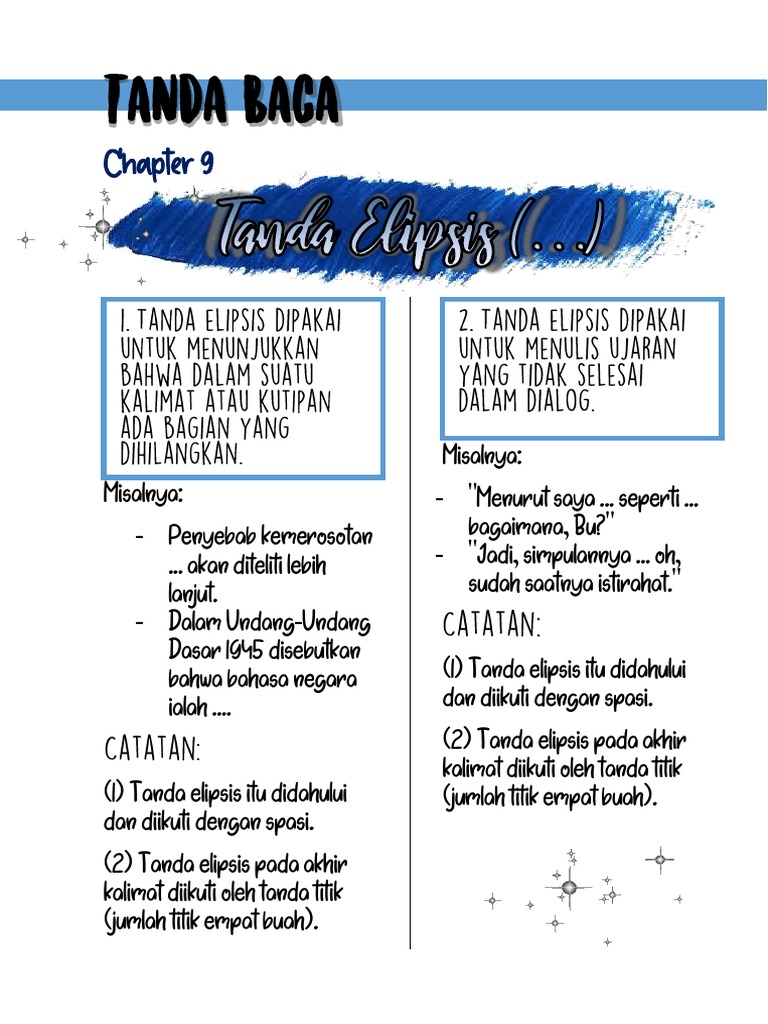 TANDA BACA
Chapter 9
Tanda Elipsis (...)
1. TANDA ELIPSIS DIPAKAI
UNTUK MENUNJUKKAN
BAHWA DALAM SUATU
KALIMAT ATAU KUTIPAN
ADA BAGIAN YANG
DIHILANGKAN.
Misalnya:
- Penyebab kemerosotan
... akan diteliti lebih
lanjut.
- Dalam Undang-Undang
Dasar 1945 disebutkan
bahwa bahasa negara
ialah ....
CATATAN:
(1) Tanda elipsis itu didahului
dan diikuti dengan spasi.
(2) Tanda elipsis pada akhir
kalimat diikuti oleh tanda titik
(jumlah titik empat buah).
2. TANDA ELIPSIS DIPAKAI
UNTUK MENULIS UJARAN
YANG TIDAK SELESAI
DALAM DIALOG.
Misalnya:
- "Menurut saya ... seperti ...
bagaimana, Bu?"
- "Jadi, simpulannya ... oh,
sudah saatnya istirahat."
CATATAN:
(1) Tanda elipsis itu didahului
dan diikuti dengan spasi.
(2) Tanda elipsis pada akhir
kalimat diikuti oleh tanda titik
(jumlah titik empat buah).